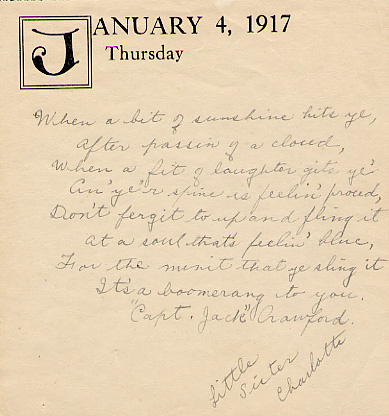 JANUARY 4, 1917
Thursday
When a bit of sunshine hits ye,
After passin of a cloud,
When a fit of laughter gits ye
An' ye'r spine is feelin' proud,
Don't fergit to up and fling it
At a soul that's feelin' blue,
For the minit that ye sling it
It's a boomerang to you.
"Capt. Jack" Crawford.
Little
Sister
Charlotte